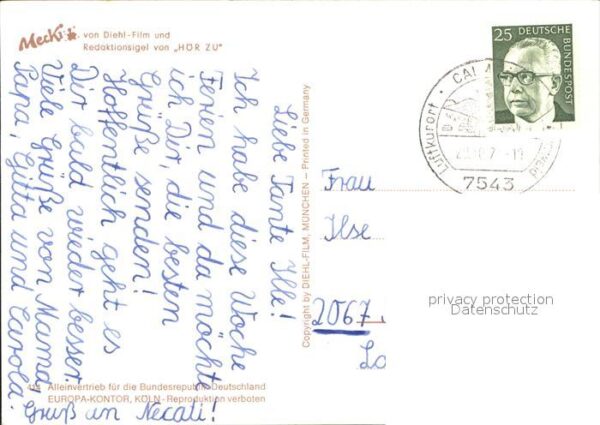 Mecki
von Diehl-Film und
Redaktionsigel von „HÖR ZU"
Liebe Tante Ille!
Ich habe diese Woche
Ferien und da möchte
ich Dir, die besten
Grüße senden!
Hoffentlich geht es
Dir bald wieder besser.
Viele Grüße von Mama,
Papa, Gitta und Carola.
Gruß an Necati!
Alleinvertrieb für die Bundesrepublik Deutschland
EUROPA-KONTOR, KÖLN - Reproduktion verboten
Copyright by DIEHL-FILM, MÜNCHEN – Printed in Germany
25 DEUTSCHE BUNDESPOST
Luftkurort
7543
Frau
Ilse
2067
privacy protection
Datenschutz